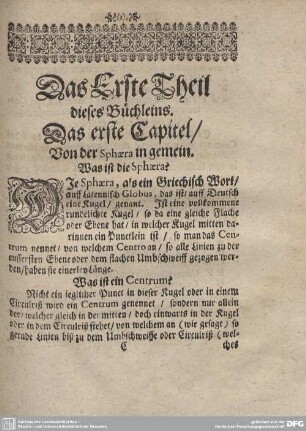 Das Erste Theil
dieses Büchleins.
Das erste Capitel/
Von der Sphæra in gemein.
Was ist die Sphæra?
DIe Sphæra, als ein Griechisch Wort/
auff lateinisch Globus, das ist auff Deutsch
eine Kugel/ genant. Ist eine vollkommene
rundelichte Kugel/ so da eine gleiche Flache
oder Ebene hat/ in welcher Kugel mitten da-
rinnen ein Punctlein ist/ so man das Cen-
trum nennet/ von welchem Centro an/ so alle Linien zu der
eussersten Ebene oder dem flachen Umbschweiff gezogen wer-
den/ haben sie einerley länge.
Was ist ein Centrum?
Nicht ein jeglicher Punct in dieser Kugel oder in einem
Circulriß wird ein Centrum genennet/ sondern nur allein
der/ welcher gleich in der mitten/ doch einwarts in der Kugel
oder in dem Circulriß stehet/ von welchem an (wie gesagt/ so
gerade Linien biß zu dem Umbschweiffe oder Circulriß (wel-
C ches